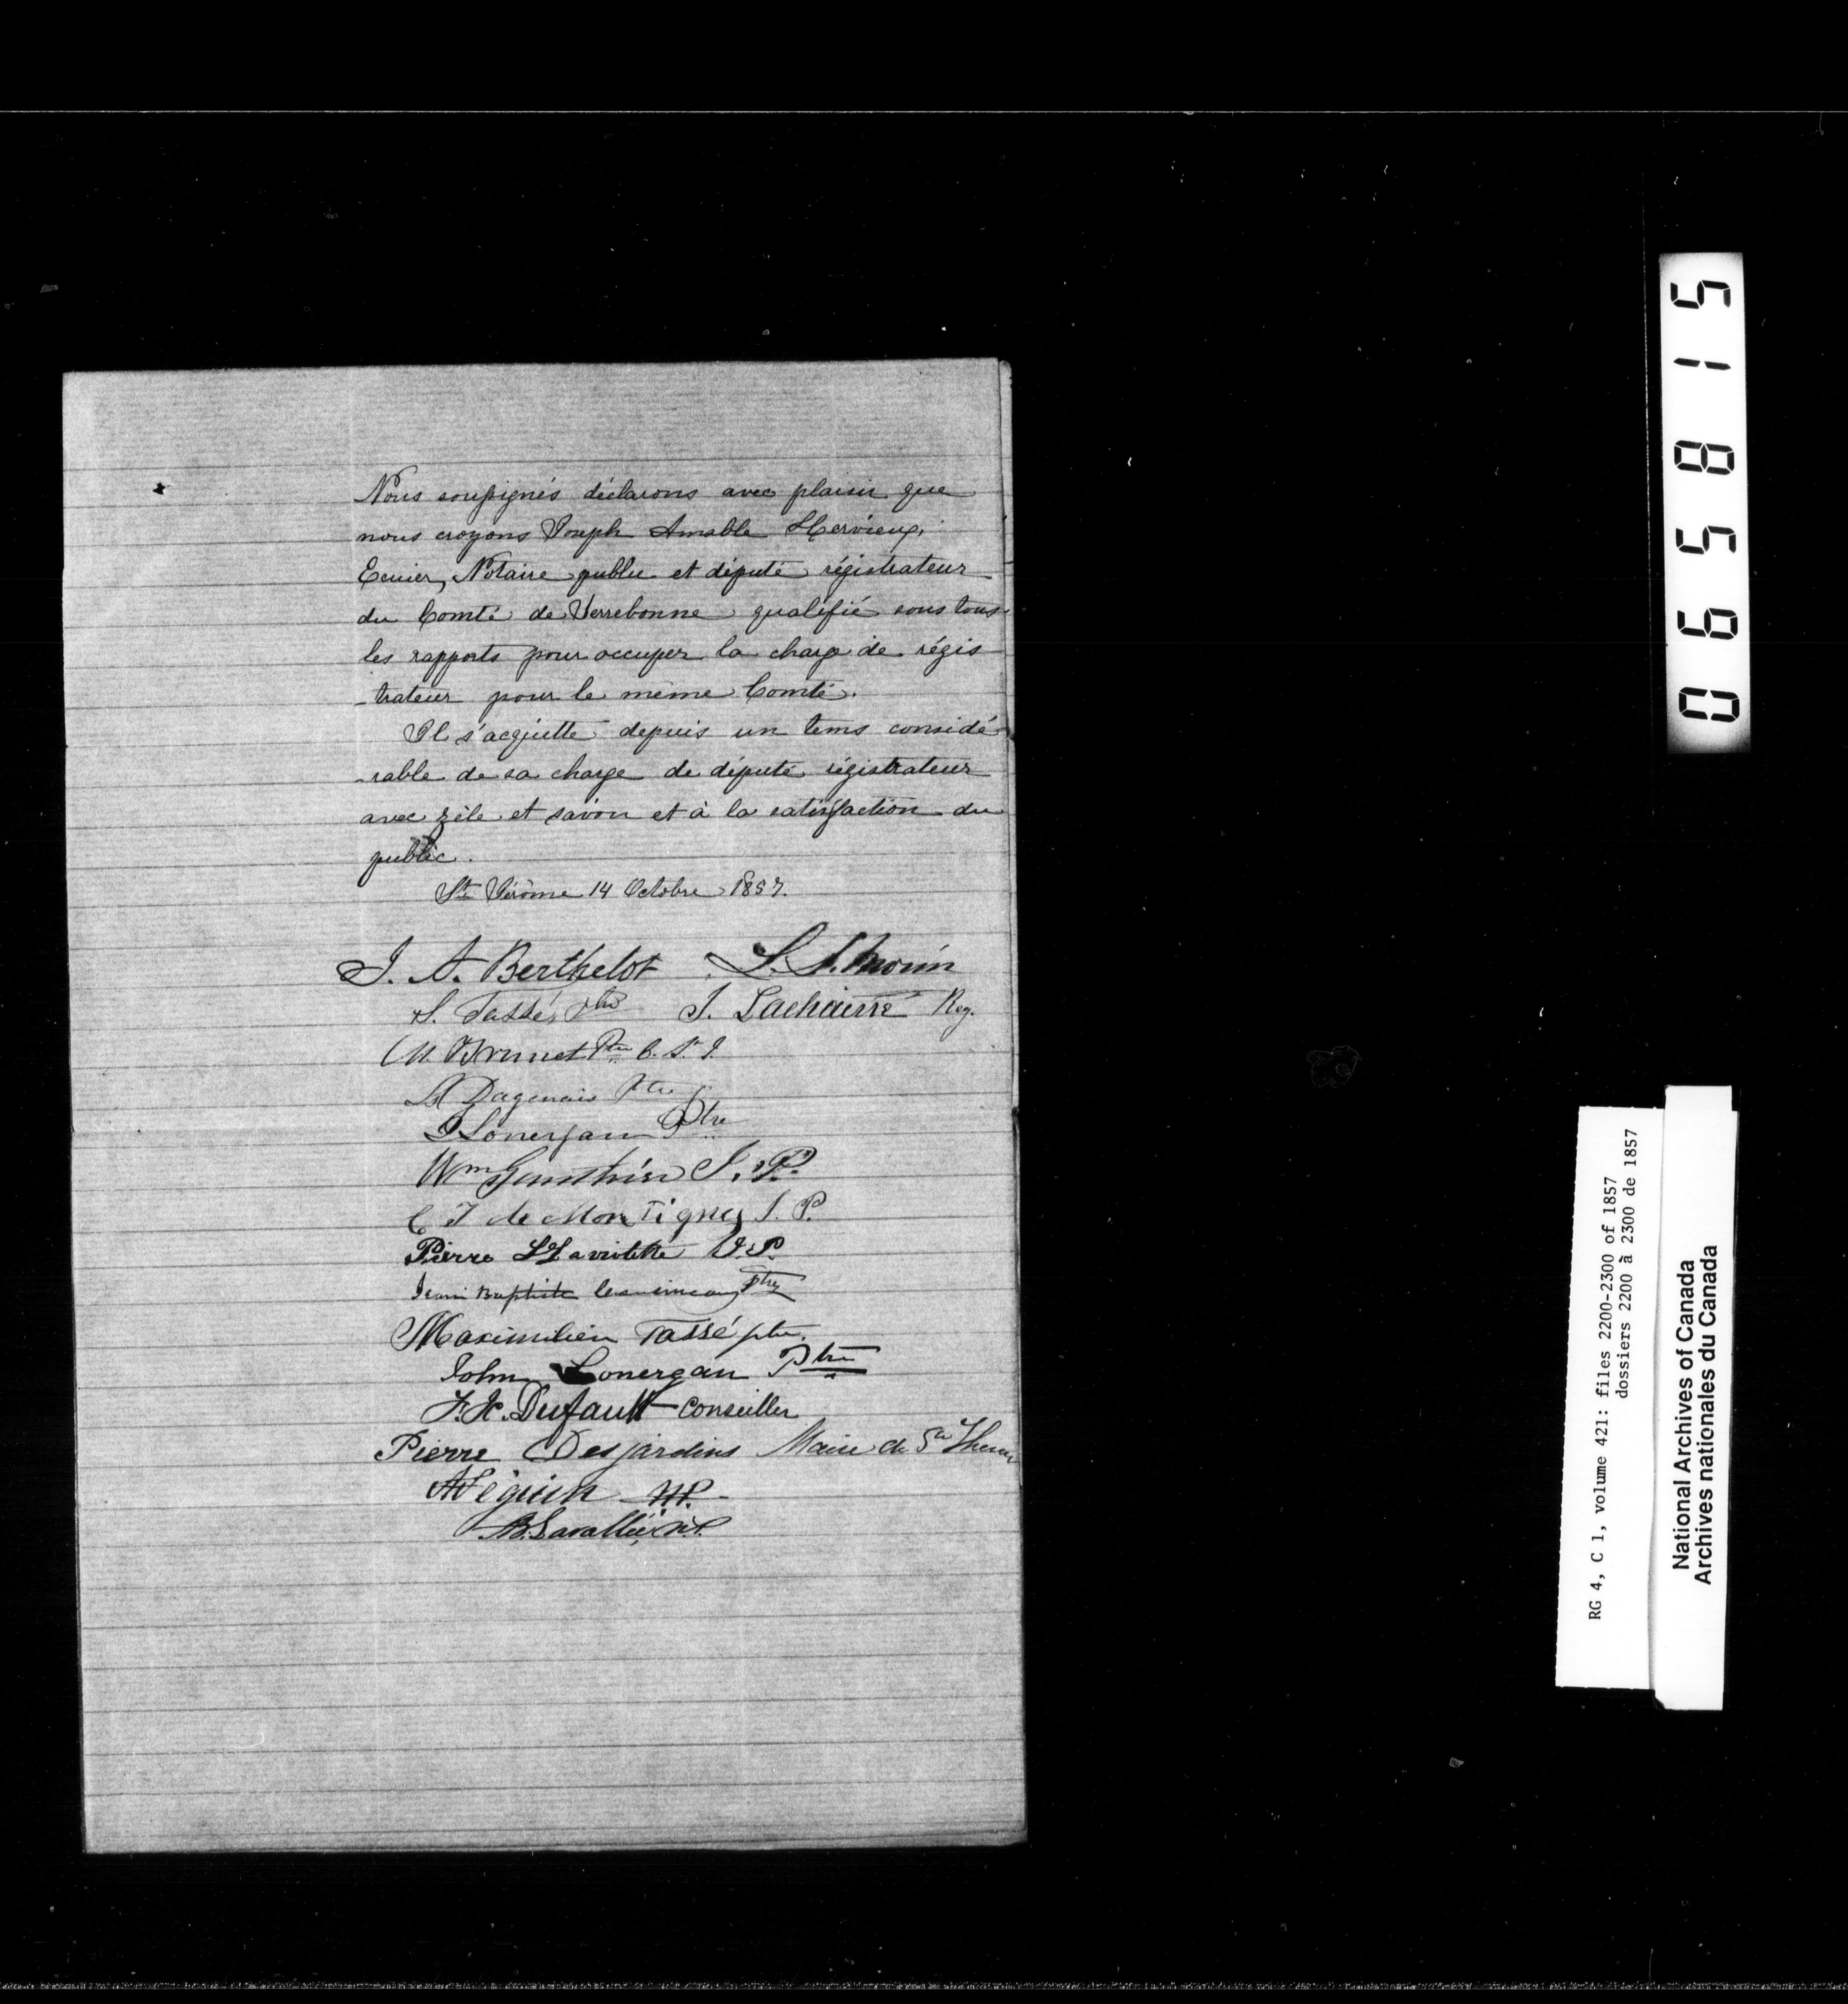 Nous soussignés déclarons avec plaisir que
nous croyons Joseph Amable Hervieux,
Ecuier, Notaire public et député régistrateur
du Comté de Terrebonne qualifié sous tous
les rapports pour occuper la charge de régis
-trateur pour le même Comté.
Il s'acquitte depuis un tems considé
-rable de sa charge de député régistrateur
avec zèle et savoir et à la satisfaction du
public.
St Jérôme 14 Octobre 1857.
J. A. Berthelot L. S. Morin
S. Tassé, Ptre J. Lachaine Reg.
M. Brunet Ptre C. S. J.
Dagenais Ptre
Lonergan Ptre
Wm Gauthier J. P.
C T de Montigny J. P.
Pierre Laviolette J. P.
Jean Baptiste Ptre
Maximilien Tassé ptre.
John Lonergan Ptre
Dufault Conseiller
Pierre Desjardins Maire de Ste
Séguin N.P.
B. Lavallée, N.P.
065815
RG 4, C 1, volume 421: files 2200-2300 of 1857
dossiers 2200 à 2300 de 1857
National Archives of Canada
Archives nationales du Canada